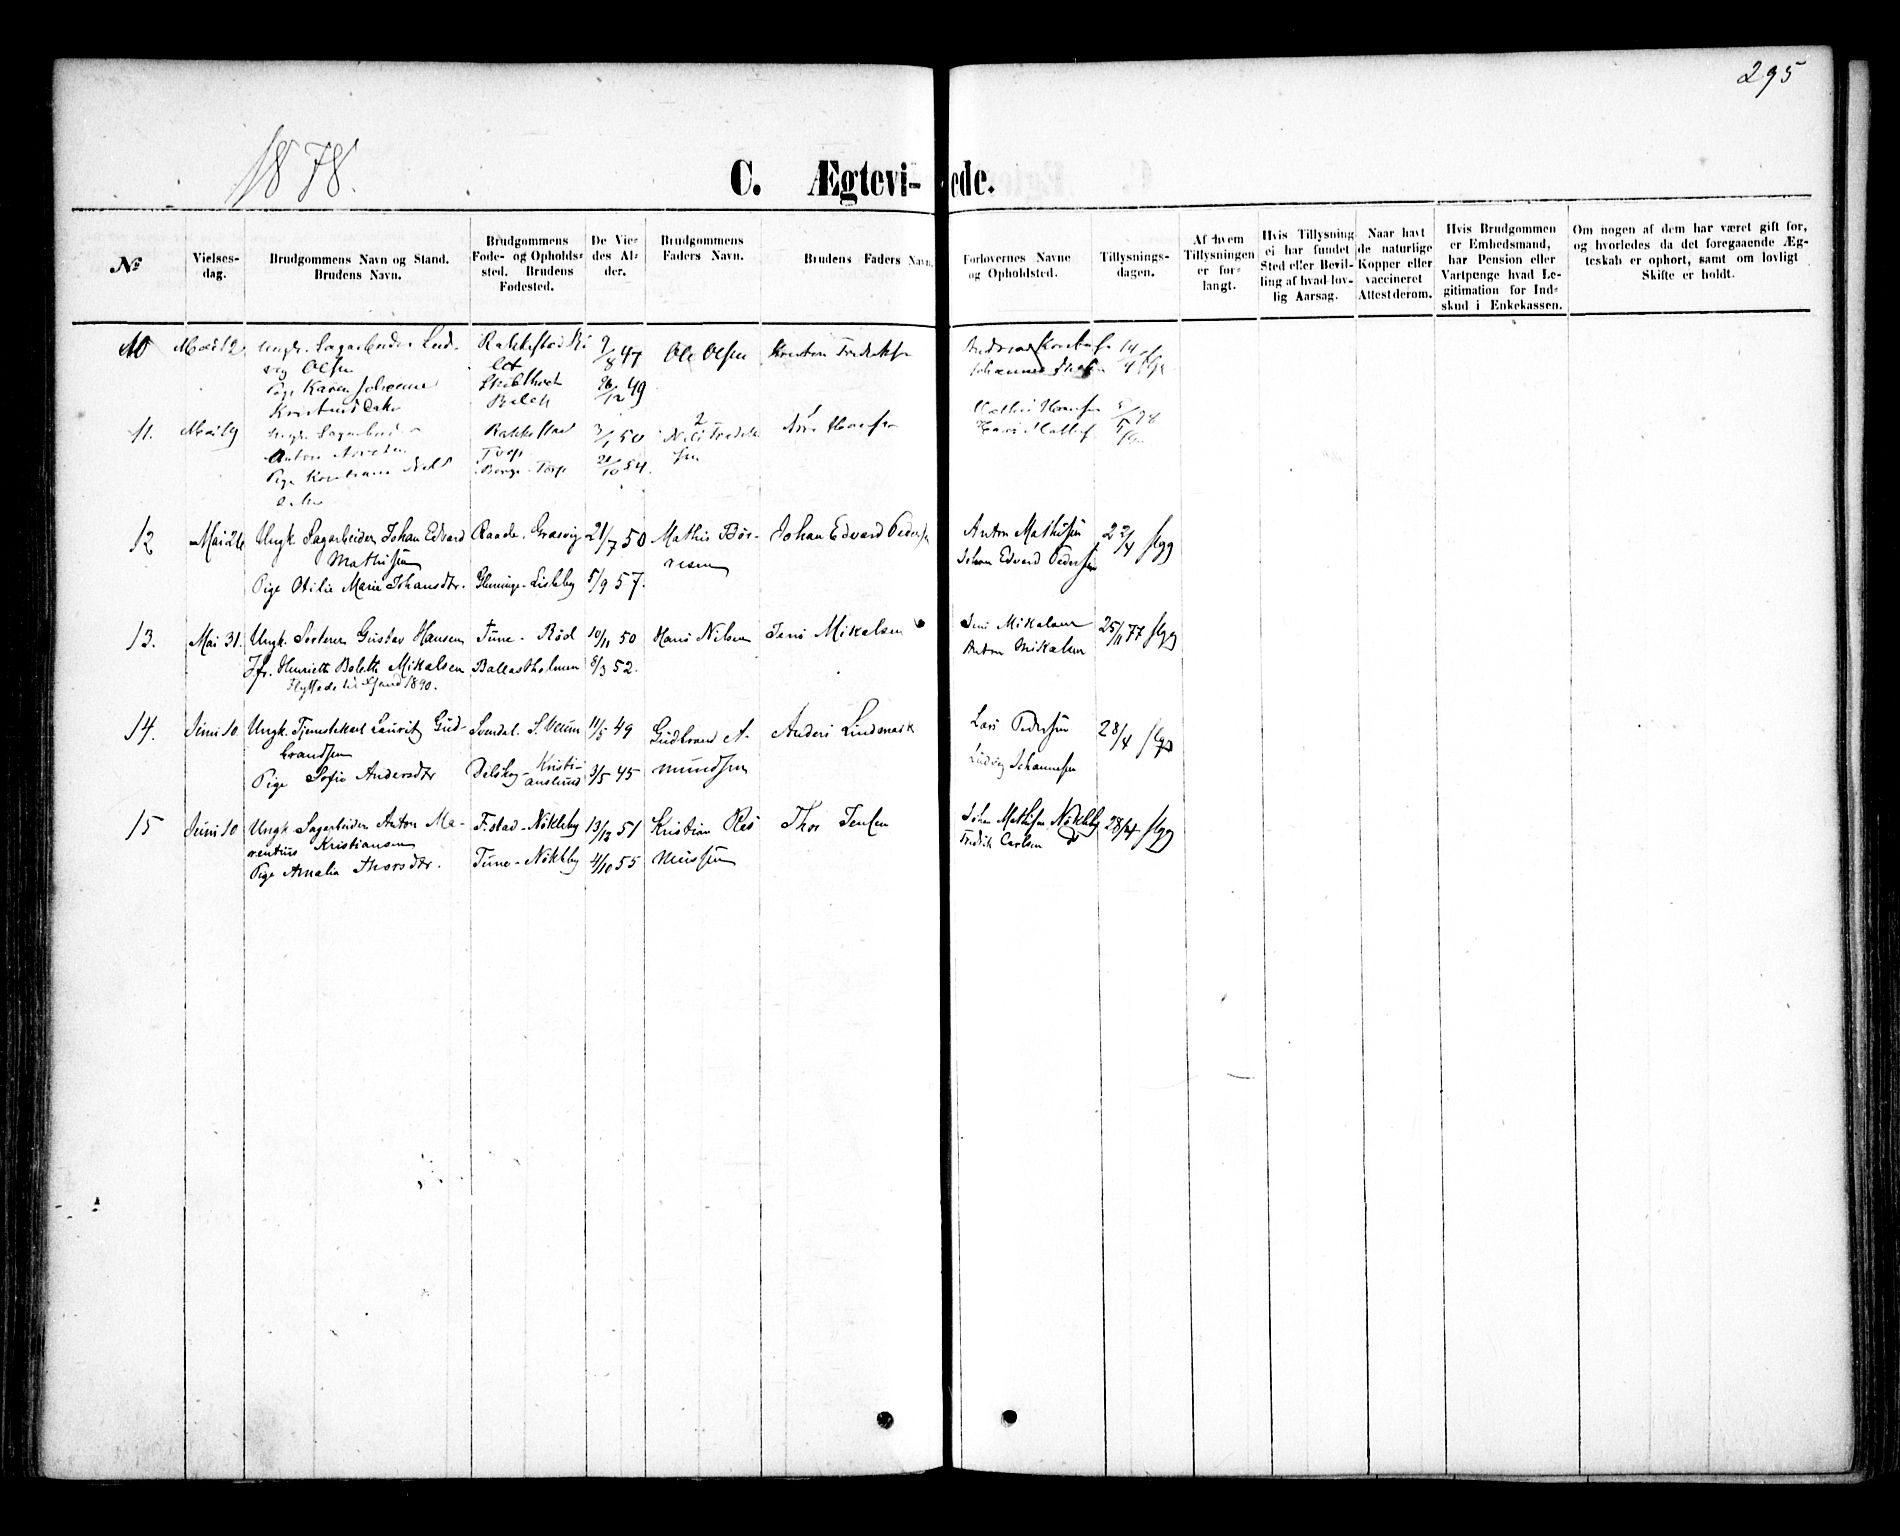 295
1878.
C. Ægtevi-ede.
№
Vielses-
dag.
Brudgommens Navn og Stand.
Brudens Navn.
Brudgommens
Føde- og Opholds-
sted. Brudens
Fødested.
De Vie-
des Al-
der.
Brudgommens
Faders Navn.
Brudens Faders Navn.
Forlovernes Navne
og Opholdsted.
Tillysnings-
dagen.
Af hvem
Tillysningen
er for-
langt.
Hvis Tillysning
ei har fundet
Sted eller Bevil-
ling af hvad lov-
lig Aarsag.
Naar havt
de naturlige
Kopper eller
vaccineret
Attest derom.
Hvis Brudgommen
er Embedsmand,
har Pension eller
Vartpenge hvad Le-
gitimation for Ind-
skud i Enkekassen.
Om nogen af dem har været gift før,
og hvorledes da det foregaaende Æg-
teskab er ophørt, samt om lovligt
Skifte er holdt.
10 Mai 12 Ungk. Sagarbeider Lud-
vig Olsen
Pige Karen
Rakkestad
9/8 47
26/12 49
Ole Olsen
11. Mai 19 Ungk. Sagarbeider
Anton
Pige
Rakkestad
Torp
Borge Torp
3/1 50
21/10 54.
12 Mai 26 Ungk. Sagarbeider Johan Edvard
Mathisen
Pige Otilie Marie Johansdtr.
Raade. Græsvig
Glemminge - Lisleby
21/7 50
5/9 57.
Mathis Bør-
resen
Johan Edvard Pedersen
Anton Mathisen
Johan Edvard Pedersen
22/4 flgg
13. Mai 31. Ungk. Sorterer Gustav Hansen
Jfr. Henriette Bolethe Mikalsen
Flyttede til 1890.
Tune - Röd
Ballastholmen
10/11 50
8/3 52.
Hans Nilsen
Jens Mikalsen
Jens Mikalsen
Anton Mikalsen
25/11 77 flgg
14. Juni 10 Ungk. Tjenestekarl Laurits Gud-
brandsen
Pige Sofie Andersdtr
Svendal.
Delskog - Kristi-
anslund
11/5 49
3/5 45
Gudbrand A-
mundsen
Anders Lindmark
Lars Pedersen
Ludvig Johannesen
28/4 flgg
15 Juni 10 Ungk. Sagarbeider Anton Ma-
rentius Kristiansen
Pige Amalia Thorsdtr.
F.stad - Nökleby
Tune - Nökleby
13/12 51
4/10 55
Kristian Ras
mussen
Thor Jensen
Johan Mathisen Nökleby
Fredrik Carlsen
28/4 flgg